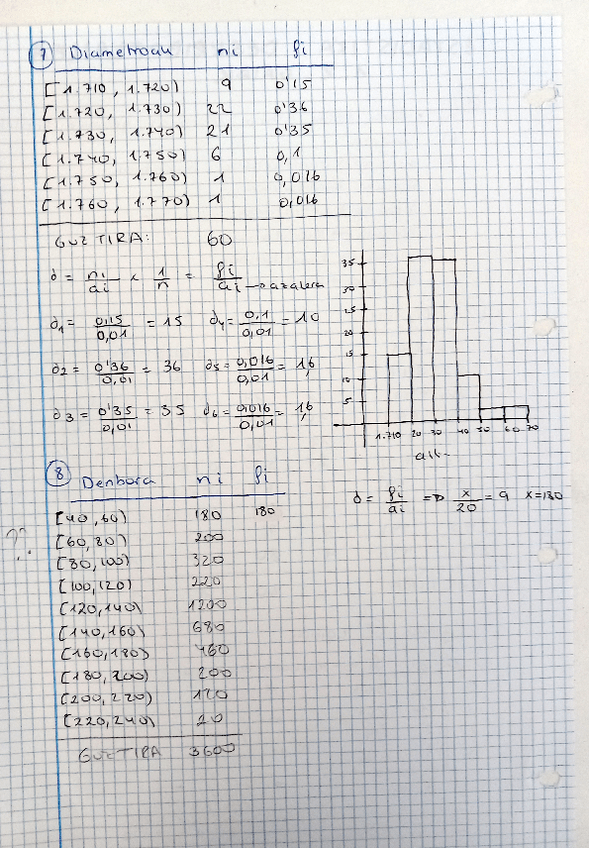 7 Diametroak ni fi
[1.710, 1.720) 9 0'15
[1.720, 1.730) 22 0'36
[1.730, 1.740) 21 0'35
[1.740, 1.750) 6 0,1
[1.750, 1.760) 1 0,016
[1.760, 1.770) 1 0,016
GUZTIRA: 60
d = ni/ai × 1/n = fi/ai → azalera
d1 = 0,15/0,01 = 15 d4 = 0,1/0,01 = 10
d2 = 0'36/0,01 = 36 d5 = 0,016/0,01 = 1,6
d3 = 0'35/0,01 = 35 d6 = 0,016/0,01 = 1,6
35
30
25
20
15
10
5
1.710 20 30 40 50 60 70
8 Denbora ni fi
d = fi/ai => x/20 = 9 x=180
??
[40,60) 180 180
[60,80) 200
[80,100) 320
[100,120) 220
[120,140) 1200
[140,160) 680
[160,180) 460
[180,200) 200
[200,220) 120
[220,240) 20
GUZTIRA 3600